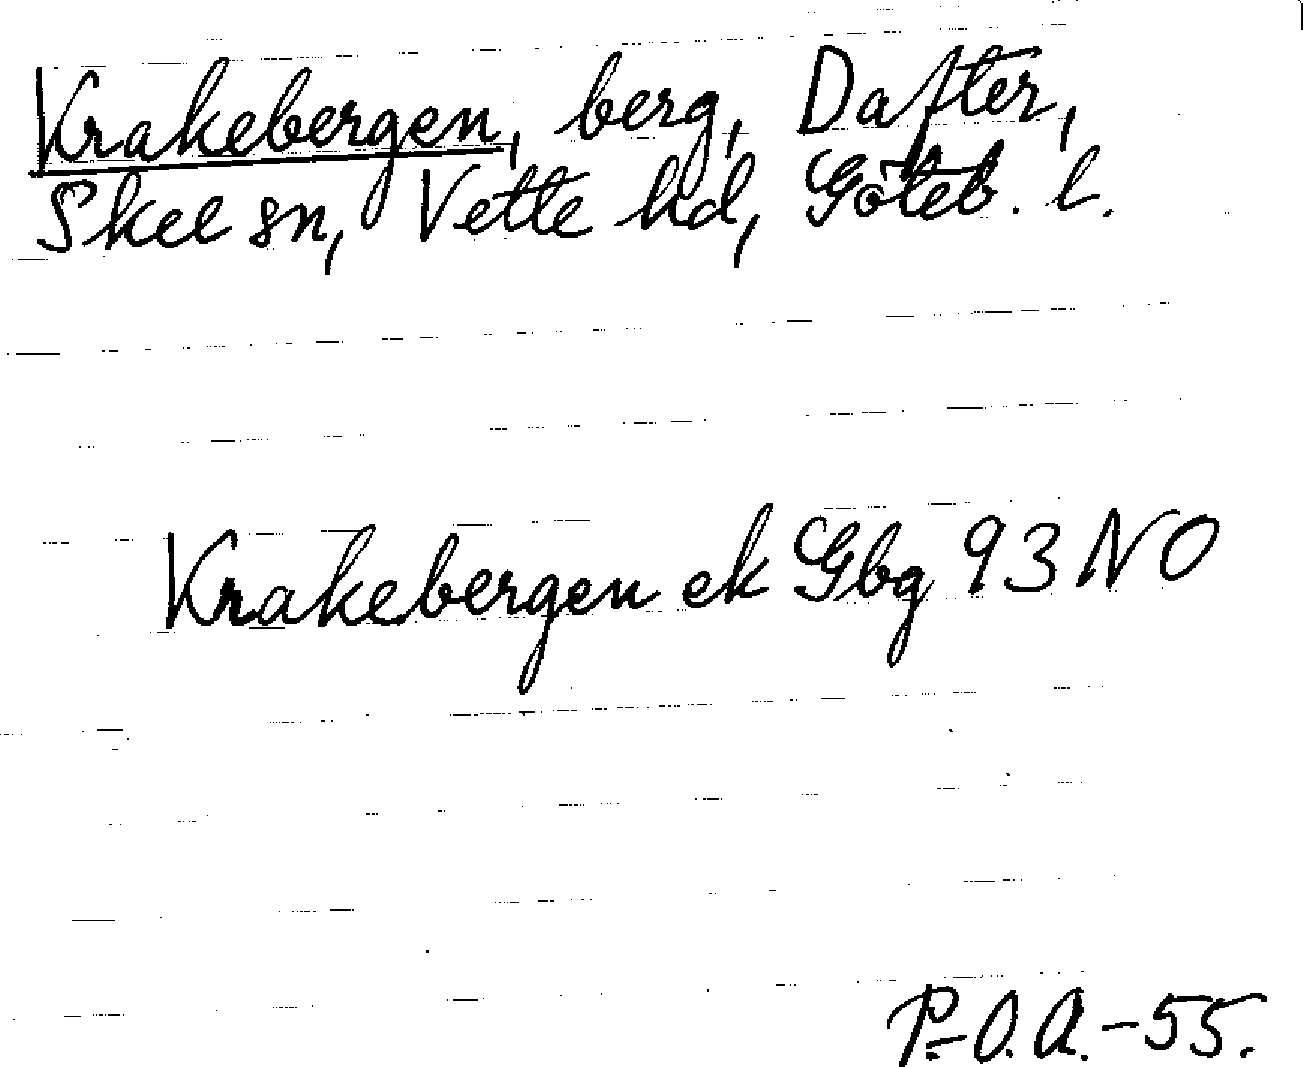 Krakebergen, berg, Dafter,
Skee sn, Vette hd, Göteb. l.
Krakebergen ek Gbg 93 NO
P.-O.A.-55.